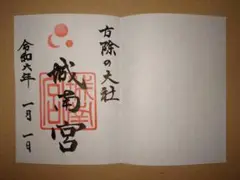 方除の大社
城南宮
令和六年 一月一日